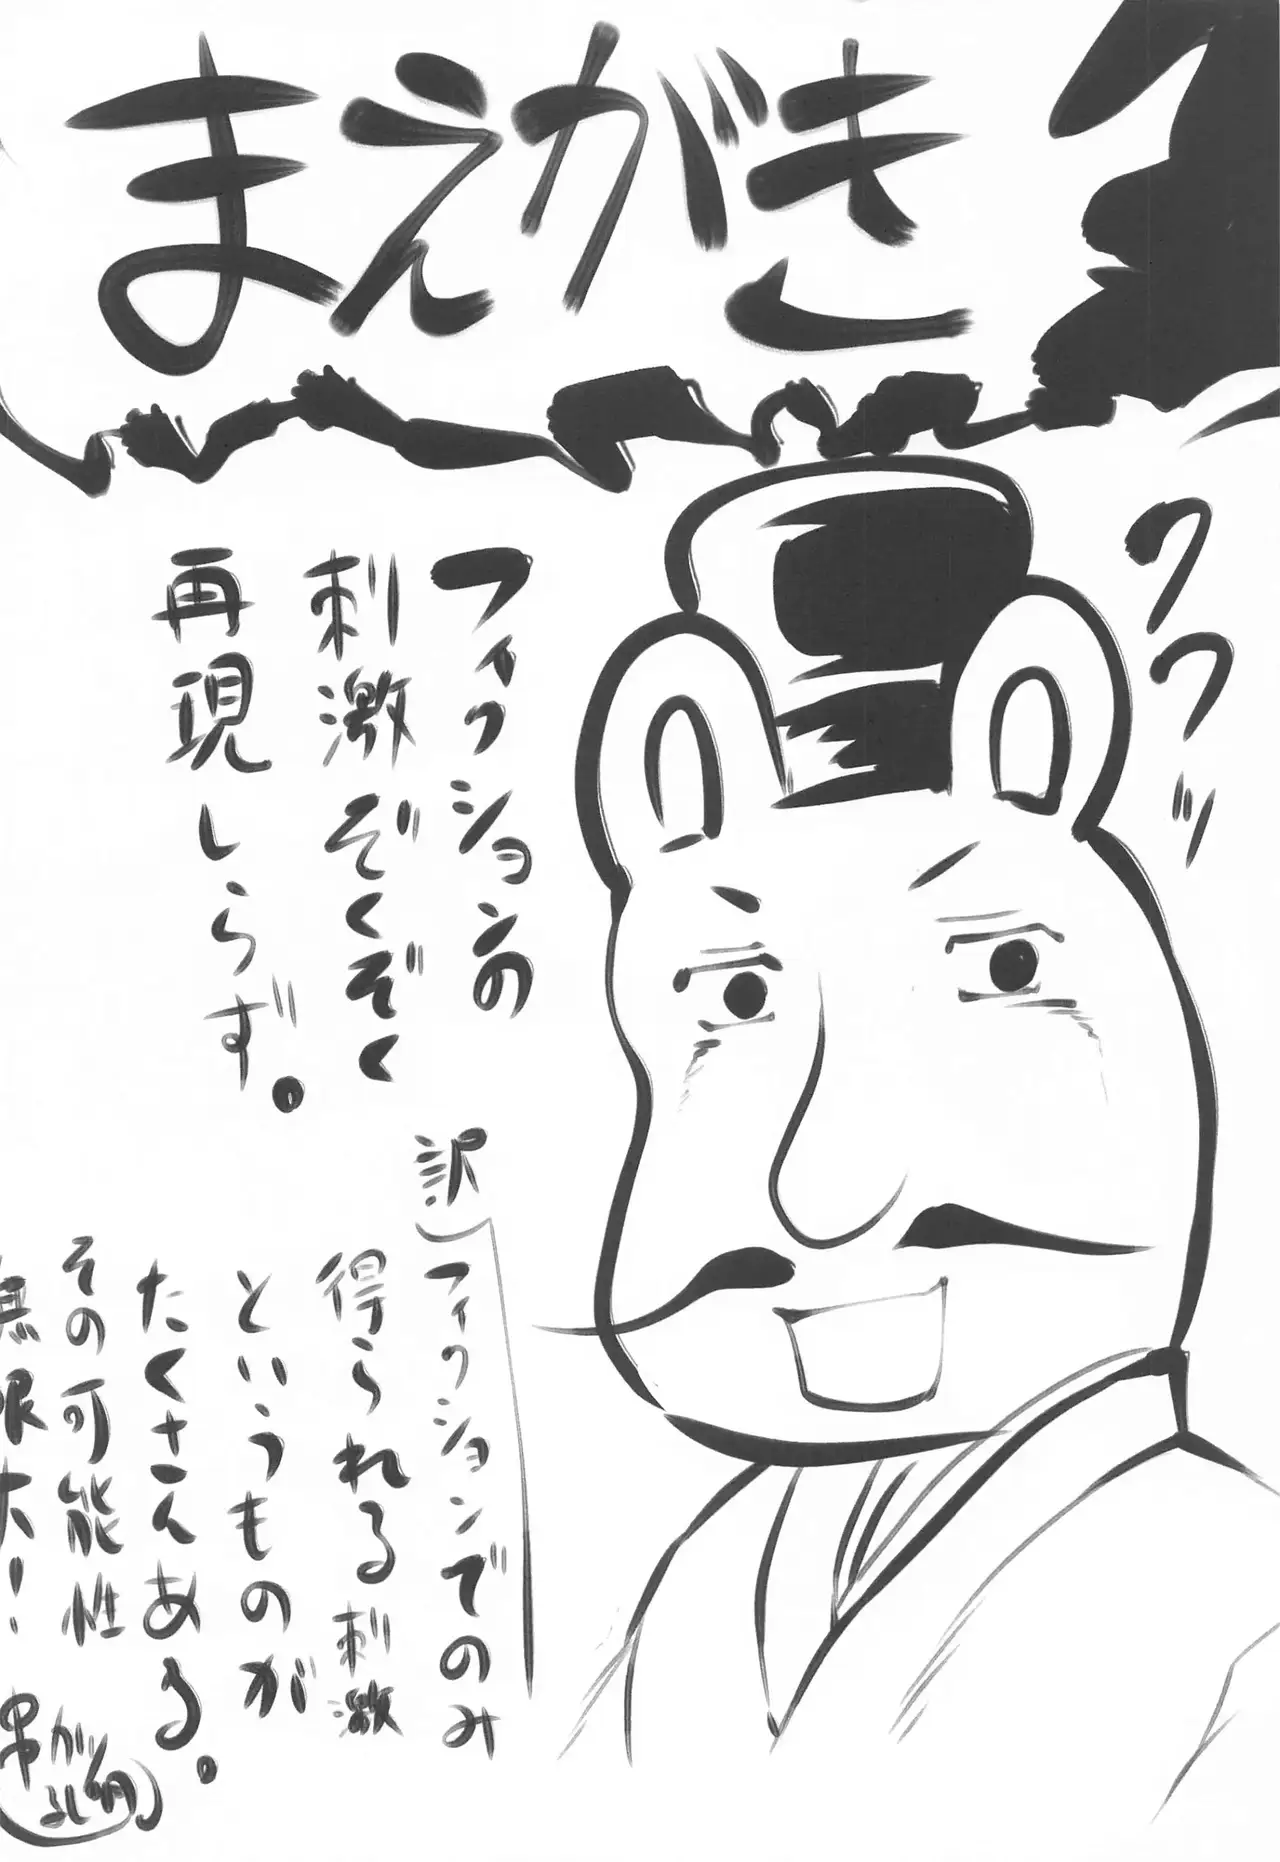 まえがき
ククク
フィクションの
刺激ぞくぞく
再現しらず。
訳)フィクションでのみ
得られる刺激
というものが
たくさんある。
その可能性
無限大!